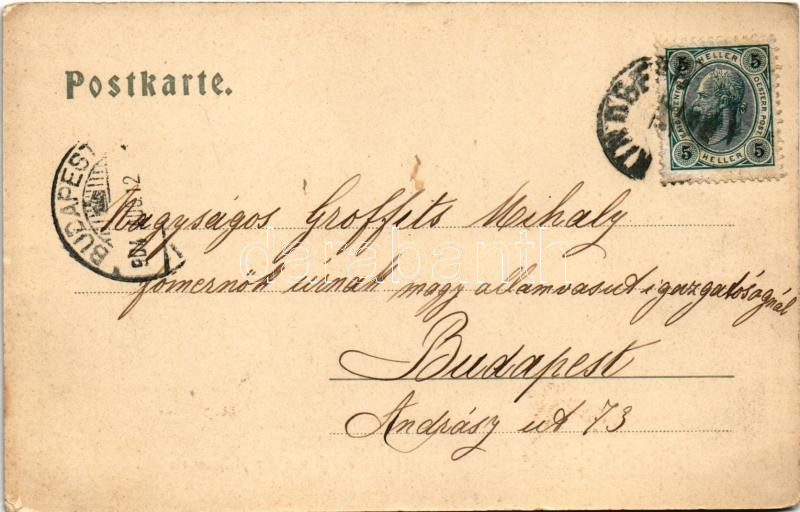 Postkarte.
5 HELLER 5
OESTERR. POST
5 HELLER 5
BUDAPEST
Nagyságos Groffits Mihaly
főmernök úrnak magy államvasut igazgatóságnál
Budapest
Andrásy ut 73
darabanth